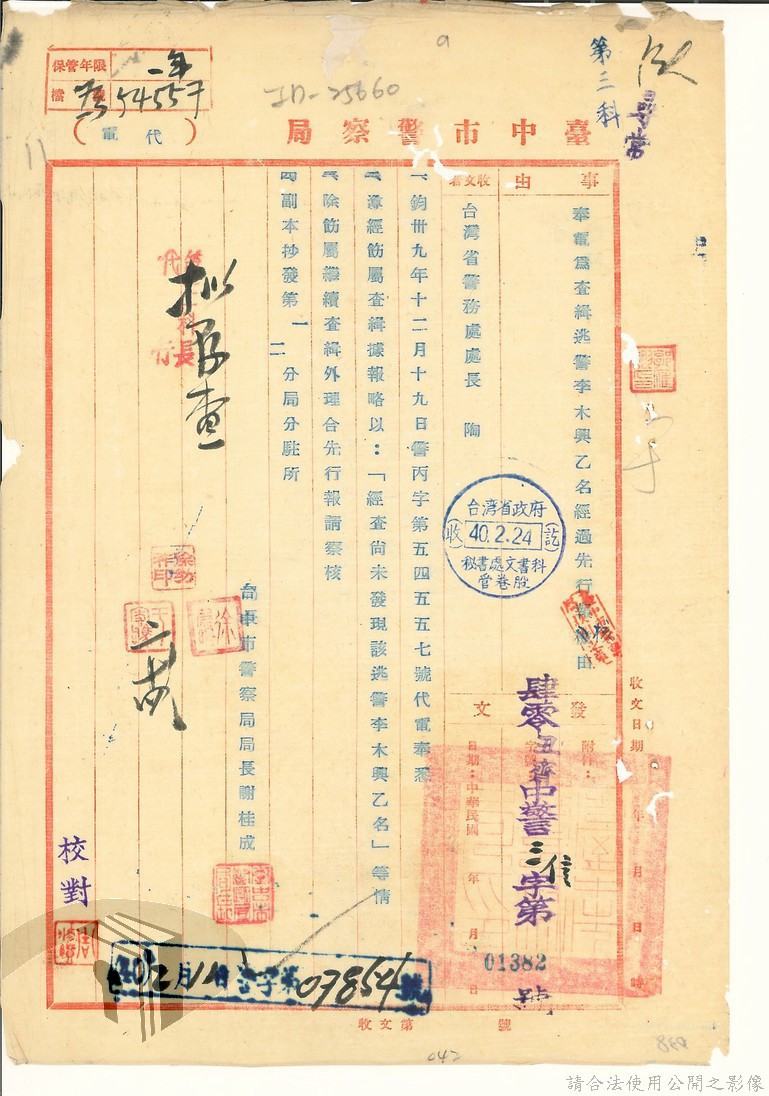 保管年限 一年
檔 為54557
ID-25660
第三科
尋常
臺中市警察局
(代電)
事由
奉電為查緝逃警李木興乙名經過先行由
收文者
台灣省警務處處長 陶
一、鈞卅九年十二月十九日警丙字第五四五五七號代電奉悉
二、遵經飭屬查緝據報略以：「經查尚未發現該逃警李木興乙名」等情
三、除飭屬繼續查緝外理合先行報請察核
四、副本抄發第一二分局分駐所
台中市警察局局長謝桂成
擬存查
台灣省政府
收 40.2.24 訖
秘書處文書科
管卷股
發文
附件：
字號
日期：中華民國 年 月 日
肆零丑齊中警三信字第 號
01382
收文日期 年 月 日 時
校對
40 2月 字第07854號
收文第 號
042
請合法使用公開之影像